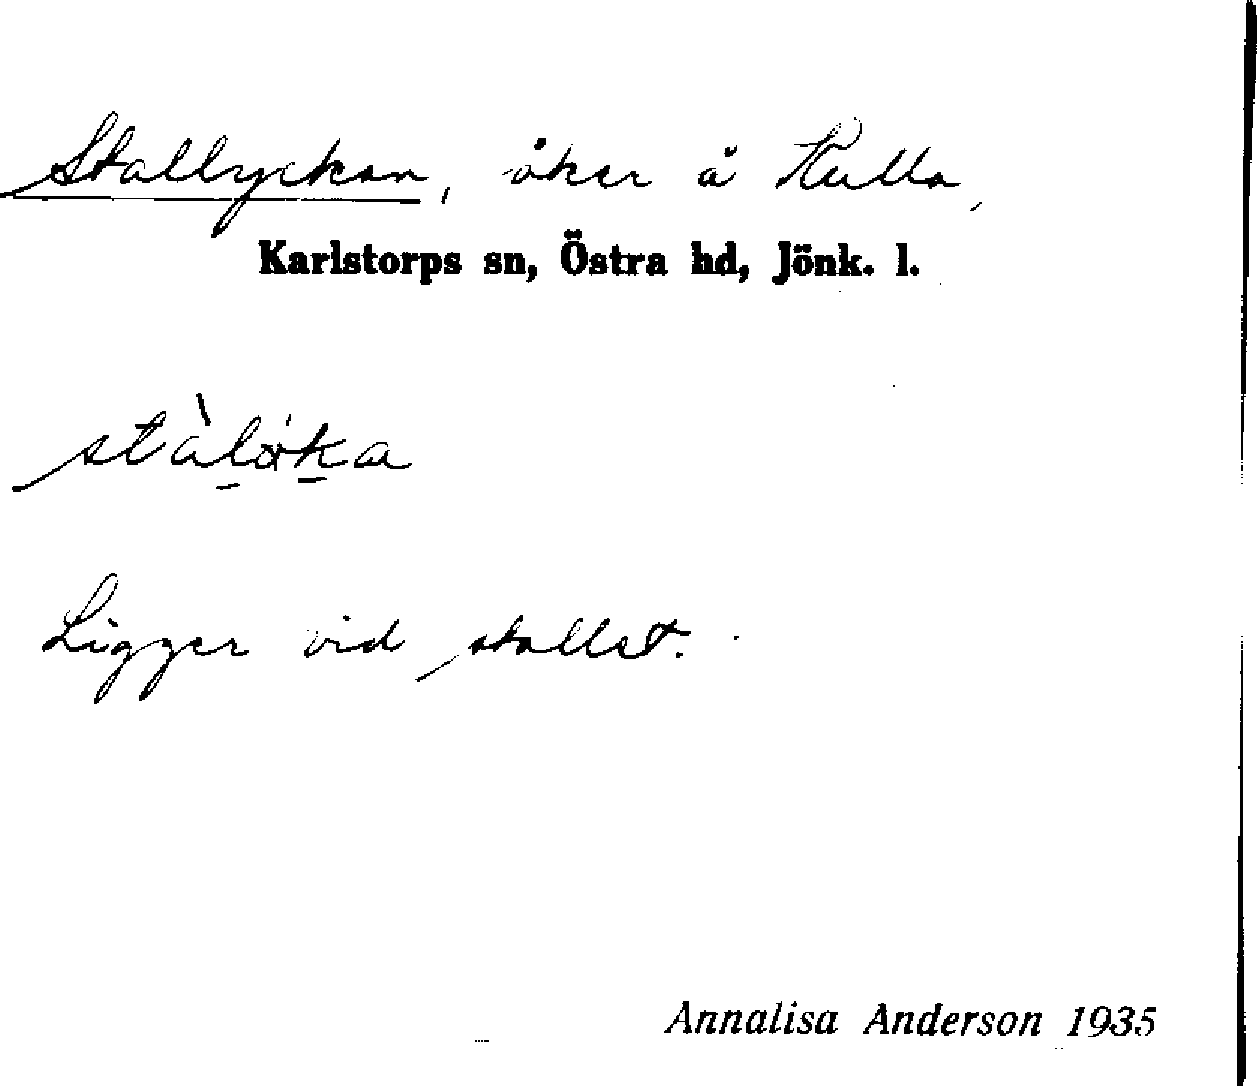 Stallyckan, åker å Kulla,
Karlstorps sn, Östra hd, Jönk. l.
stàlöka
Ligger vid stallet.
Annalisa Anderson 1935